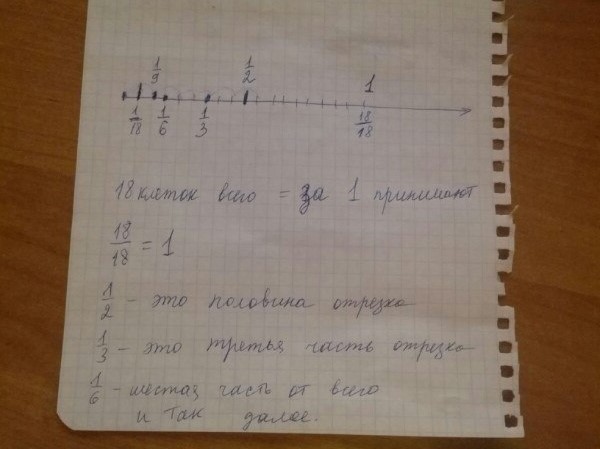 1/9 1/2 1
1/18 1/6 1/3 18/18
18 клеток всего = за 1 принимают
18/18 = 1
1/2 - это половина отрезка
1/3 - это третья часть отрезка
1/6 - шестая часть от всего
и так далее.